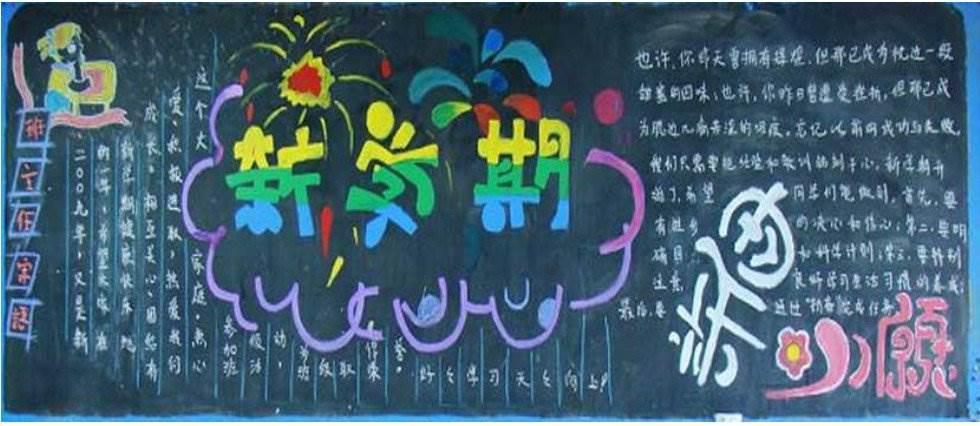 班主任寄语
二00九年，又是新
的一年，希望大家在
新学期健康快乐地
成长，相互关心，团结有
爱，积极进取，热爱我们
这个大家庭，热心
参加班级活动，为班级取得荣誉。
好好学习天天向上！
新学期
也许，你昨天曾拥有辉煌，但那已成为枕边一段
甜蜜的回味；也许，你昨日曾遭受挫折，但那已成
为腮边几滴苦涩的泪痕。忘记以前的成功与失败，
我们只需要把经验和教训铭刻于心。新学期开
始了，希望同学们能做到，首先，要
有进步的决心和信心；第二，要明
确目标和科学计划；第三，要特别
注意良好学习方法习惯的养成；
最后，要通过勤奋完成任务